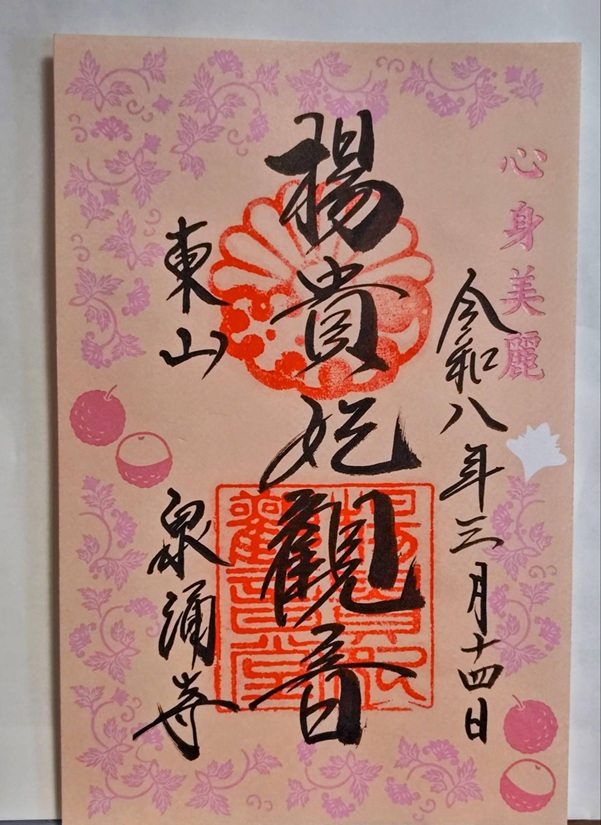 心身美麗
令和八年三月十四日
楊貴妃觀音
東山
泉涌寺